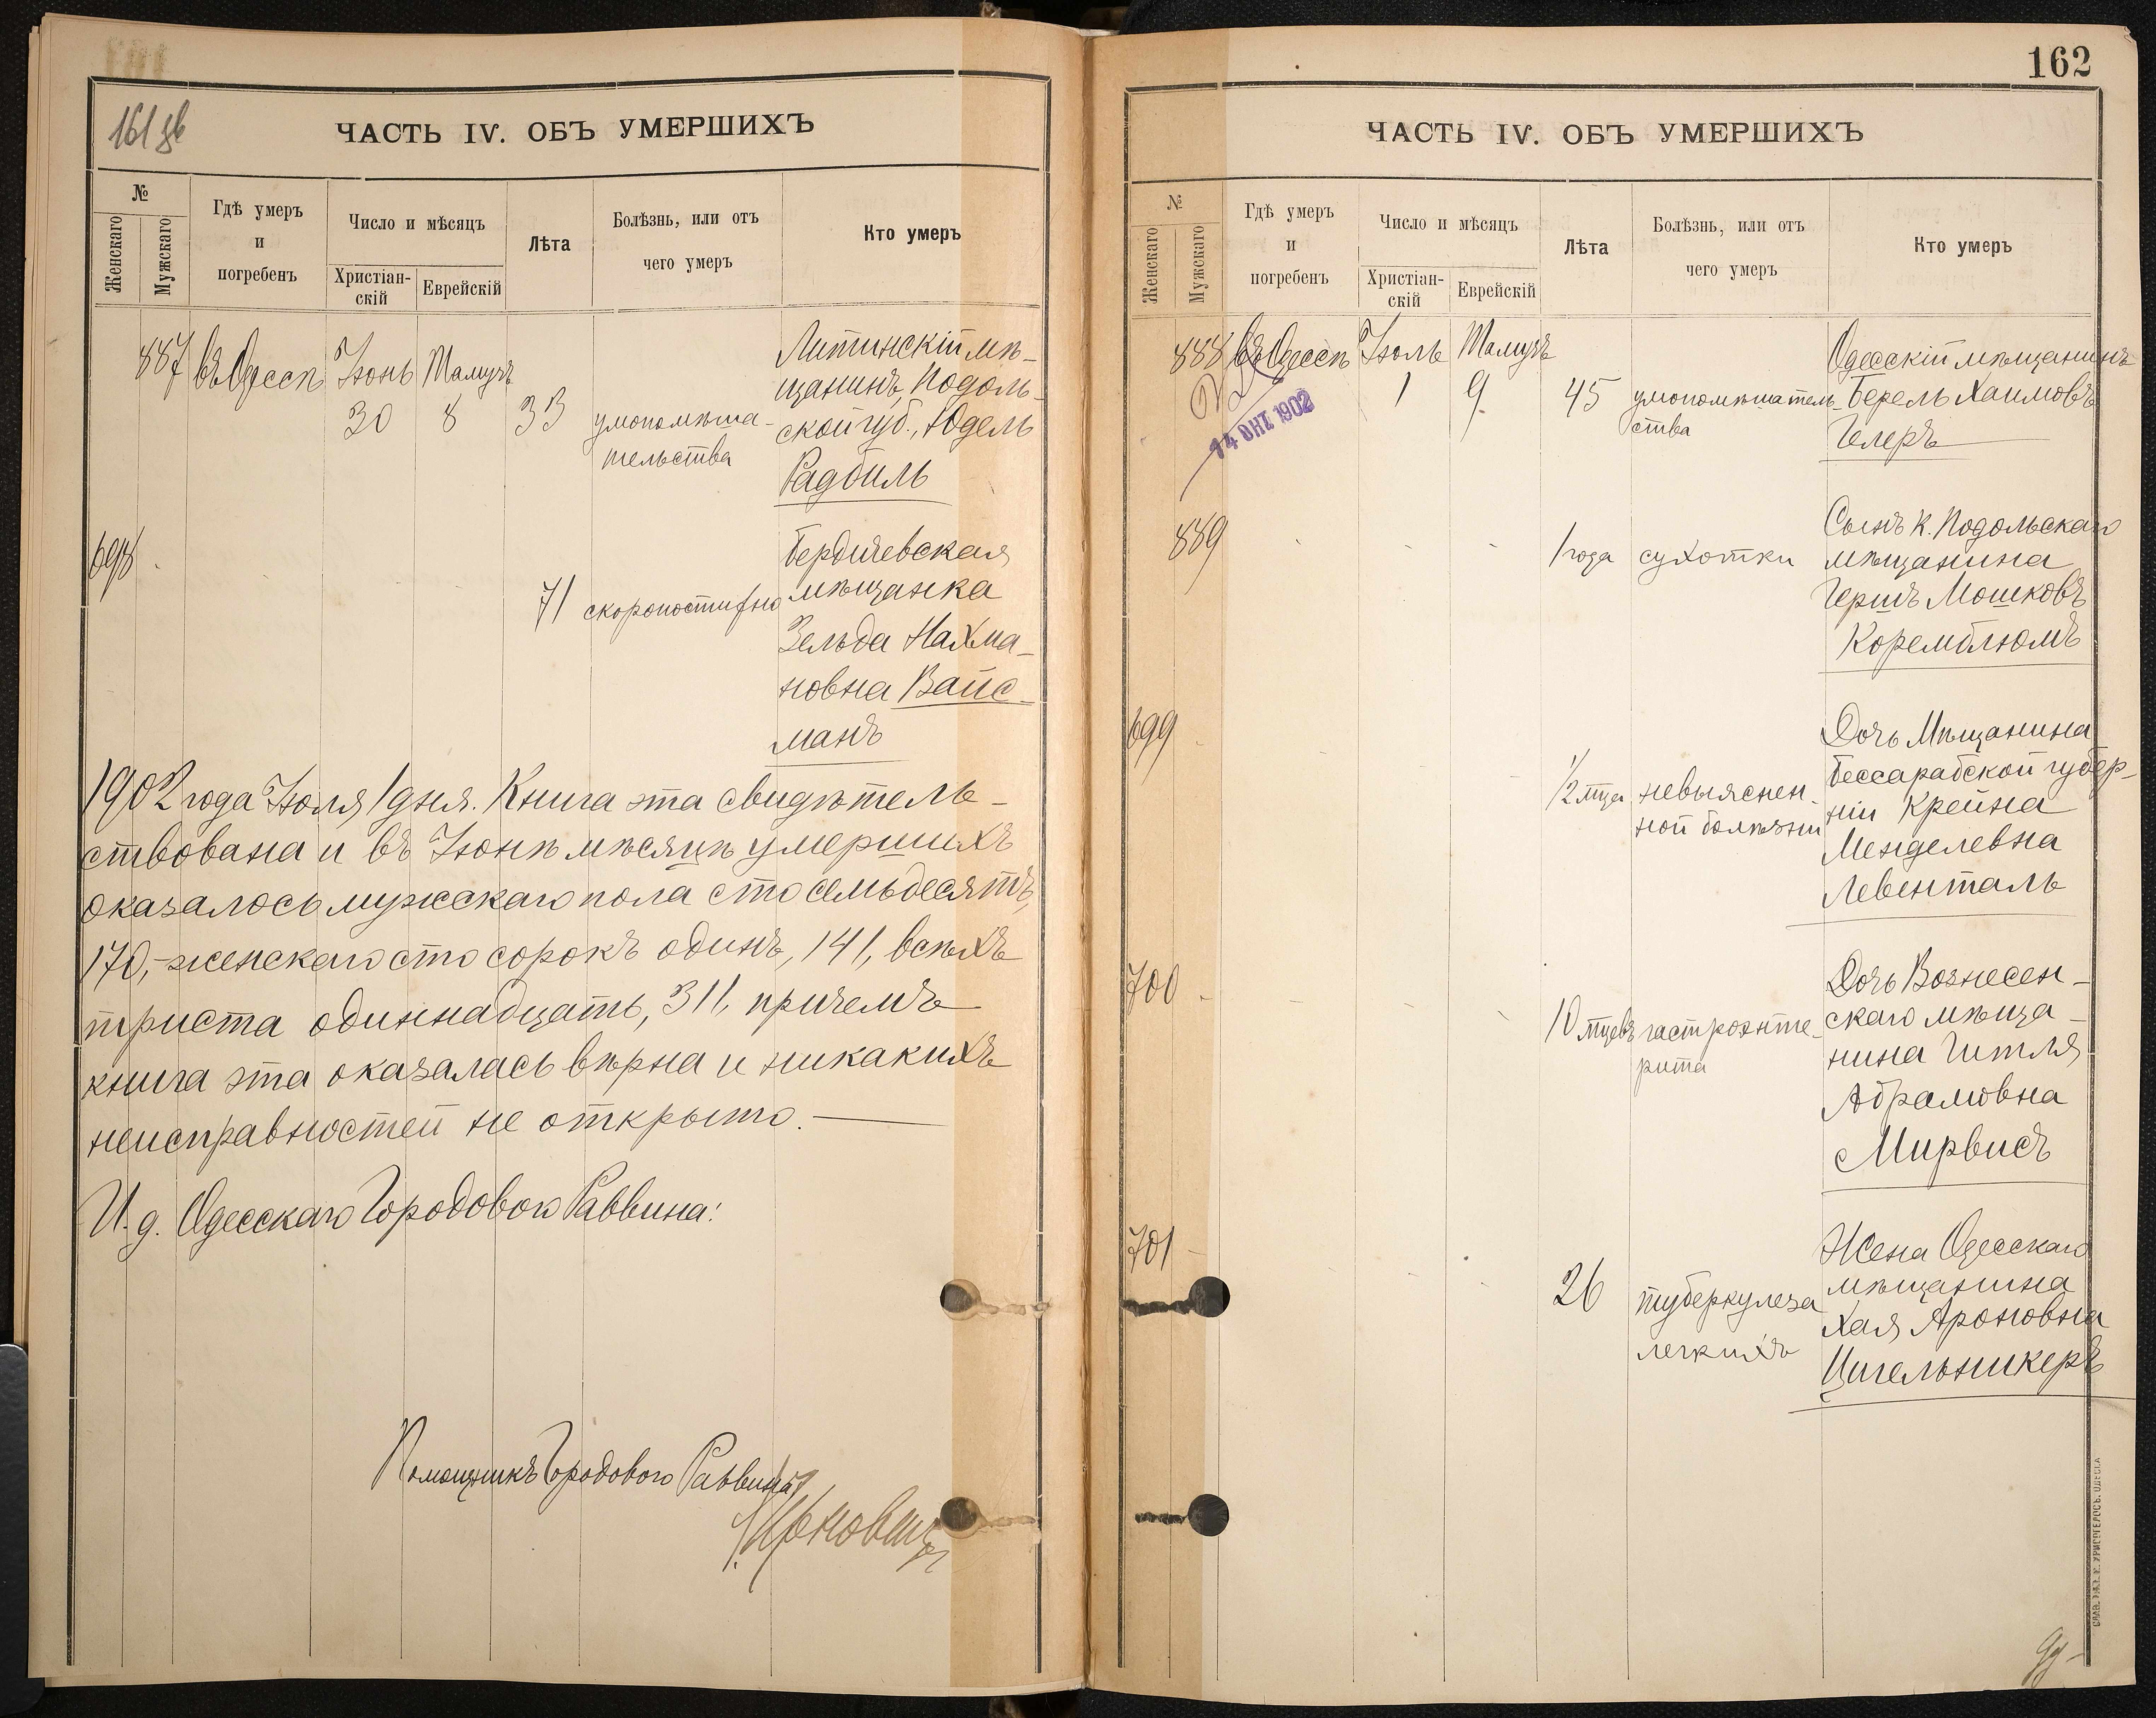 ЧАСТЬ IV. ОБЪ УМЕРШИХЪ
№
Женскаго
Мужскаго
Гдѣ умеръ
и
погребенъ
Число и мѣсяцъ
Христіан-
скій
Еврейскій
Лѣта
Болѣзнь, или отъ
чего умеръ
Кто умеръ
887 въ Одессѣ Іюнь Тамузъ
30 8 33
умопомѣша-
тельства
Литинскій мѣ-
щанинъ, Подоль-
ской губ., Юдель
Радбиль
698
71 скоропостижно
Бердичевская
мѣщанка
Зельда Нахма-
новна Вайс-
манъ
1902 года Іюля 1 дня. Книга эта свидѣтель-
ствована и въ Іюнѣ мѣсяцѣ умершихъ
оказалось мужескаго пола сто семьдесятъ,
170, женскаго сто сорокъ одинъ, 141, всѣхъ
триста одиннадцать, 311, причемъ
книга эта оказалась вѣрна и никакихъ
неисправностей не открыто.
И. д. Одесскаго Городового Раввина:
Помощникъ Городового Раввина
162
ЧАСТЬ IV. ОБЪ УМЕРШИХЪ
№
Женскаго
Мужскаго
Гдѣ умеръ
и
погребенъ
Число и мѣсяцъ
Христіан-
скій
Еврейскій
Лѣта
Болѣзнь, или отъ
чего умеръ
Кто умеръ
888 въ Одессѣ Іюль Тамузъ
1 9 45
умопомѣшатель-
ства
Одесскій мѣщанинъ
Берель Хаимовъ
Гелеръ
14 ОКТ 1902
889
1 года сухотки
Сынъ К. Подольскаго
мѣщанина
Гершъ Мошковъ
Корембліомъ
699
1/2 мца невыяснен-
ной болѣзни
Дочь Мѣщанина
Бессарабской губер-
ніи Крейна
Менделевна
Левенталь
700
10 мцевъ гастроэнте-
рита
Дочь Вознесен-
скаго мѣща-
нина Гитля
Абрамовна
Мирвисъ
701
26 туберкулеза
легкихъ
Жена Одесскаго
мѣщанина
Хая Ароновна
Цигельникеръ